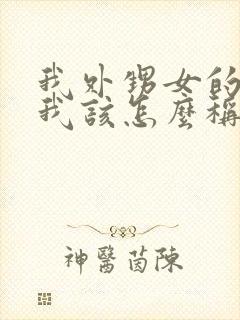 我外甥女的
我該怎麼稱
神醫茵陳